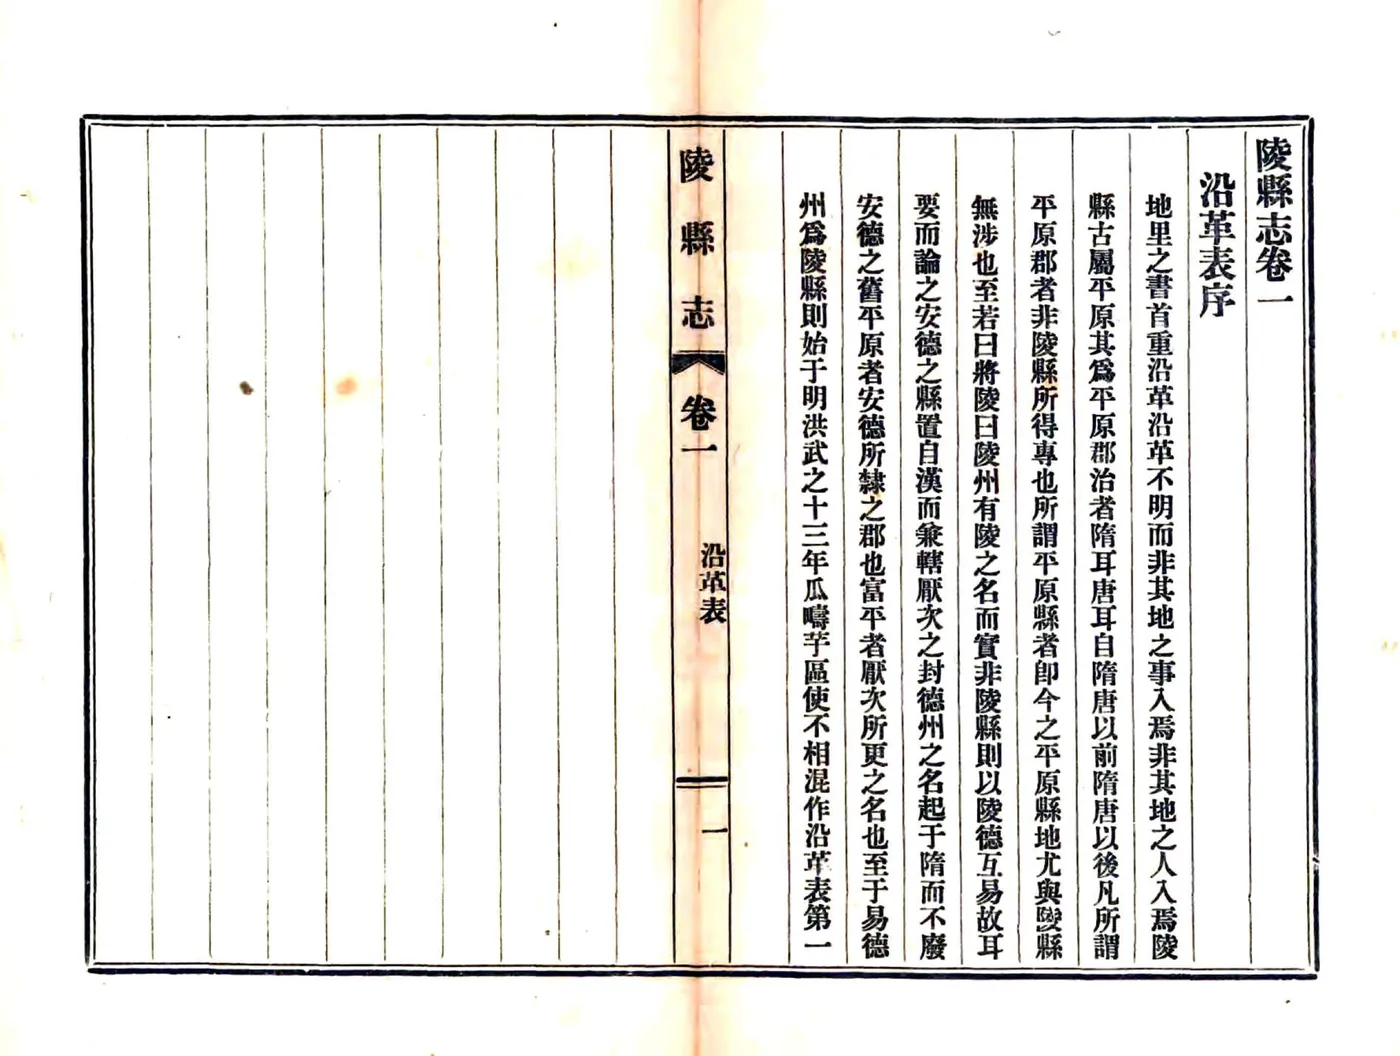 陵縣志卷一
沿革表序
地里之書首重沿革沿革不明而非其地之事入焉非其地之人入焉陵
縣古屬平原其爲平原郡治者隋耳唐耳自隋唐以前隋唐以後凡所謂
平原郡者非陵縣所得專也所謂平原縣者卽今之平原縣地尤與陵縣
無涉也至若曰將陵曰陵州有陵之名而實非陵縣則以陵德互易故耳
要而論之安德之縣置自漢而兼轄厭次之封德州之名起于隋而不廢
安德之舊平原者安德所隸之郡也富平者厭次所更之名也至于易德
州爲陵縣則始于明洪武之十三年瓜疇芋區使不相混作沿革表第一
陵縣志
卷一
沿革表
一